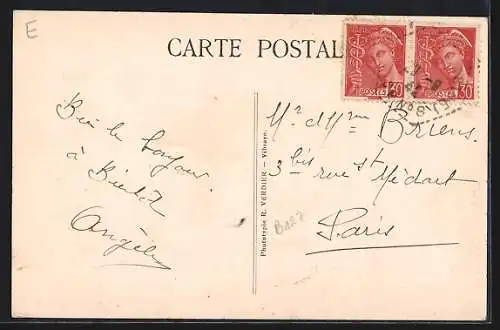 E
CARTE POSTALE
30
POSTES
30
Bien le bonjour
à Bientôt
Angèle
Phototypie R. VERDIER - Vibraye.
Mr. et Mme Briens.
3 bis rue St Médard
Paris